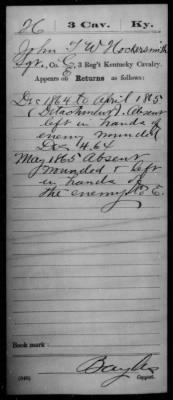 26 3 Cav. Ky.
John T. W. Hockersmith
Sgt., Co. E, 3 Reg't Kentucky Cavalry.
Appears on Returns as follows:
Dec 1864 to April 1865
(Detachment). Absent
left in hands of
enemy wounded
Dec 4. 64
May 1865 Absent
wounded & left
in hands of
the enemy
Book mark:
(646)
Bayles
Copyist.